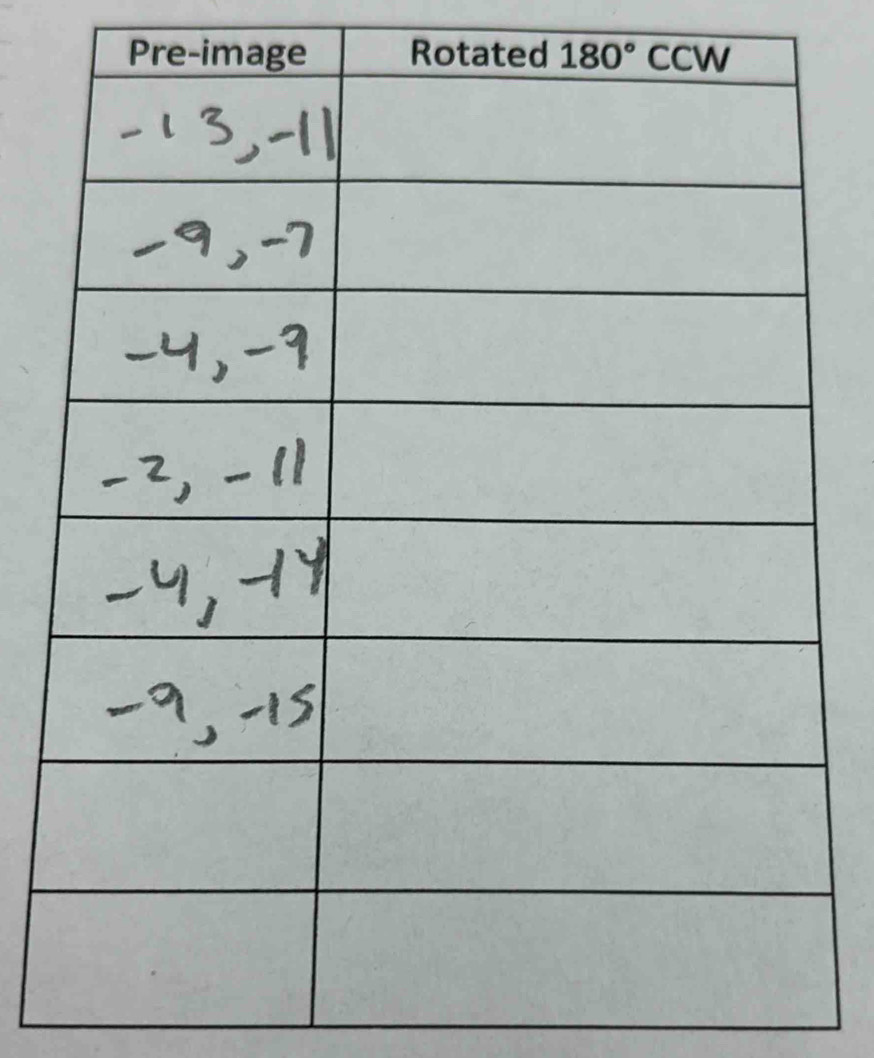 Pre-image Rotated 180° CCW
-13, -11
-9, -7
-4, -9
-2, -11
-4, -14
-9, -15